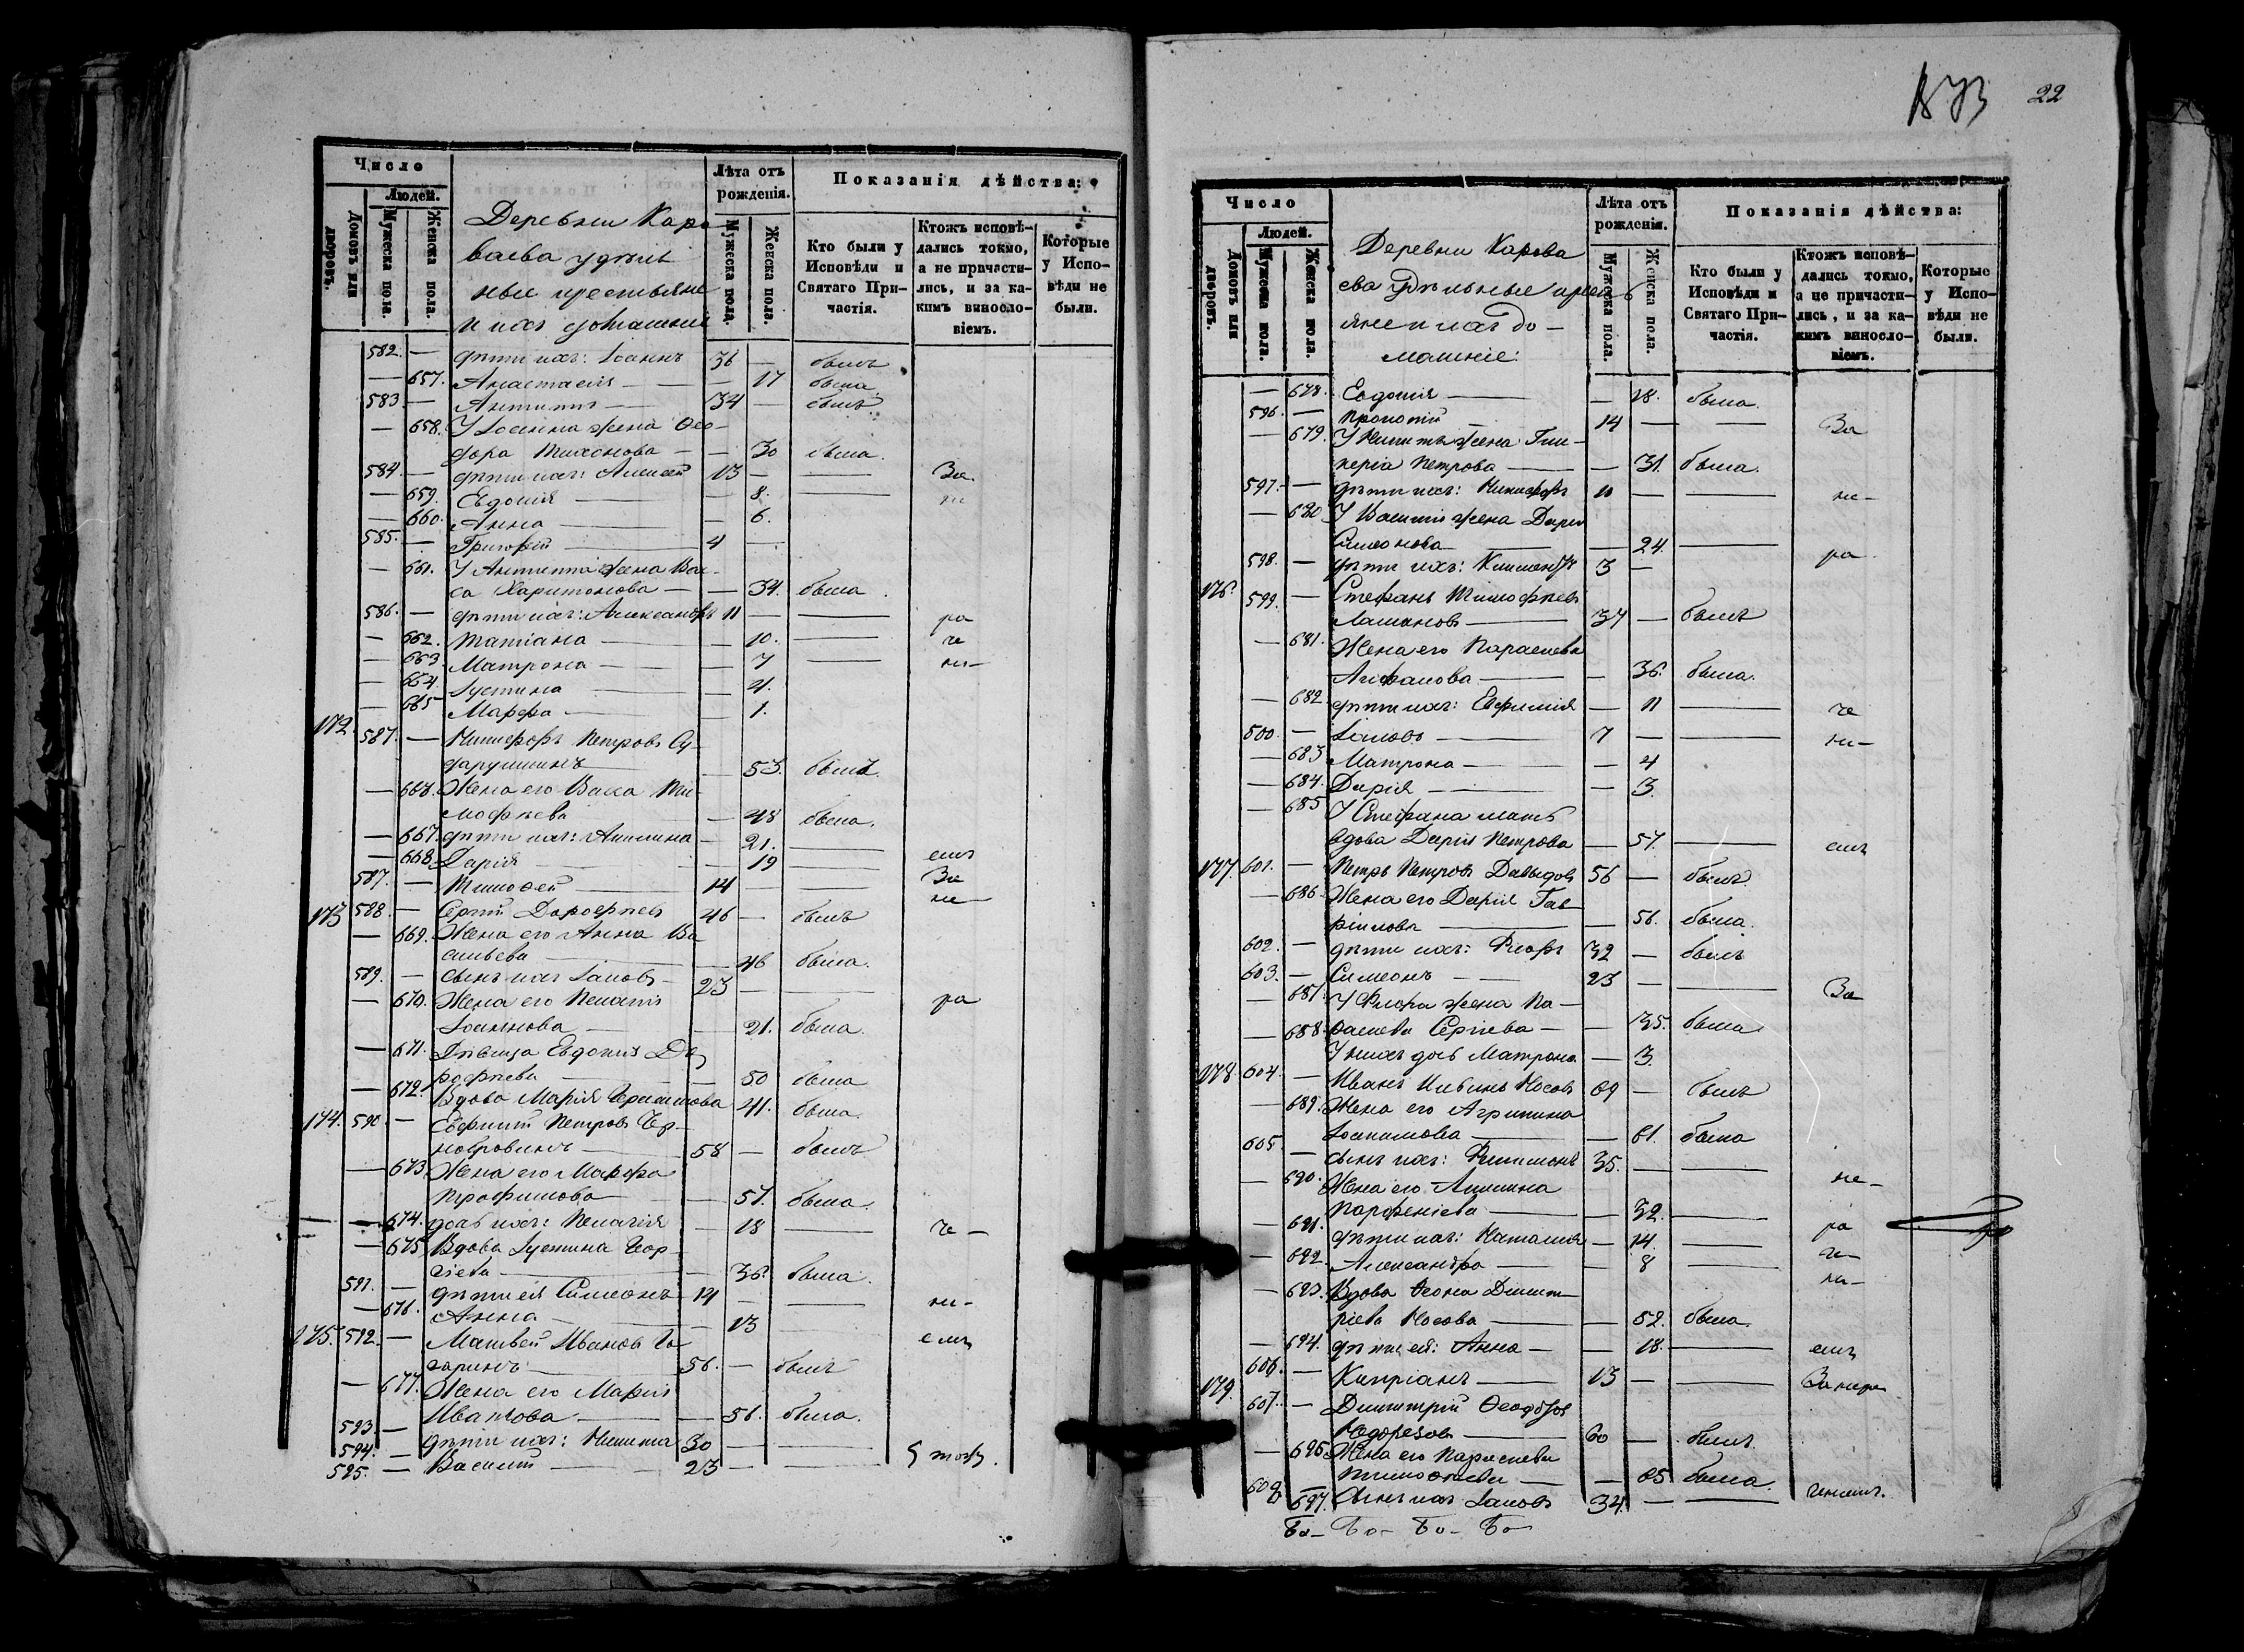 Число
Людей.
Домовъ или дворовъ.
Мужеска пола.
Женска пола.
Деревни Каро
ваева удѣль
ные крестьяне
и ихъ домашніе
Лѣта отъ рожденія.
Мужеска пола.
Женска пола.
Показанія дѣйства:
Кто были у Исповѣди и Святаго Причастія.
Ктожъ исповѣдались токмо, а не причастились, и за какимъ винословіемъ.
Которые у Исповѣди не были.
582. — дѣти ихъ: Іоаннъ 36 — былъ
— 657. Анастасія — 17 была
583. — Антиппъ 34 — былъ
— 658. У Іоанна жена Ѳео-
дора Тихонова — 30 была.
584. — дѣти ихъ: Алексей 13 — За
— 659. Евдокія — 8. не
— 660. Анна — 6.
585. — Григорій 4 —
— 661. У Антиппа жена Вас
са Харитонова — 34. была
586. — дѣти ихъ: Александръ 11 — ра
— 662. Татіана — 10. че
— 663. Матрона — 7 ні-
— 664. Іустина — 4.
— 665 Марфа — 1.
172. 587. — Никифоръ Петровъ Су
дарушкинъ — 53. былъ.
— 666. Жена его Васса Ти
мофѣева — 48 была.
— 667. дѣти ихъ: Акилина — 21.
— 668. Дарія — 19 емъ
587. — Тимоѳей 14 — За
173 588. — Сергій Дороѳѣевъ 46 — былъ не—
— 669. Жена его Анна Ва
сильева — 46 была.
589. — сынъ ихъ Іаковъ 23 —
— 670. Жена его Пелагія ра
Іоаннова — 21. была.
— 671. Дѣвица Евдокія До
роѳѣева — 50 была
— 672. Вдова Марія Герасимова 41. была.
174. 590 — Евфимій Петровъ Чер-
нобровкинъ 58 — былъ
— 673. Жена его Марфа
Трофимова — 57. была.
— 674. дочь ихъ: Пелагія — 18 че —
— 675 Вдова Іустина Геор-
гіева — 36. была.
591. — дѣти ея Симеонъ 14 — ні-
— 676. Анна — 13
175. 592. — Матвей Ивановъ Га емъ
гаринъ 56. — былъ
— 677. Жена его Марія
Иванова — 56. была.
593. —
594. — дѣти ихъ: Никита 30 —
595. — Василій 23 —
22
Число
Людей.
Домовъ или дворовъ.
Мужеска пола.
Женска пола.
Деревни Карова
ева удѣльные крест
яне и ихъ до-
машніе:
Лѣта отъ рожденія.
Мужеска пола.
Женска пола.
Показанія дѣйства:
Кто были у Исповѣди и Святаго Причастія.
Ктожъ исповѣдались токмо, а не причастились, и за какимъ винословіемъ.
Которые у Исповѣди не были.
— 678. Евдокія — 18. была.
596. — Прокопій 14 — За
— 679. У Никиты жена Гли-
керіа Петрова — 31. была.
597. — дѣти ихъ: Никифоръ 10 — не-
— 680 У Василія жена Дарія
Симеонова — 24.
598. — дѣти ихъ: Климентъ 3 — ра
176. 599. — Стефанъ Тимоѳѣевъ
Лашановъ 37 — былъ
— 681. Жена его Параскева
Агафанова — 36. была.
— 682. дѣти ихъ: Евфимія — 11 че
500. — Іаковъ 7 — ні-
— 683 Матрона — 4
— 684. Дарія — 3.
— 685 У Стефана мать
вдова Дарія Петрова — 57. емъ
177. 601. — Петръ Петровъ Давыдовъ 56 — былъ.
— 686. Жена его Дарія Гав
ріилова — 56. была.
602. — дѣти ихъ: Флоръ 32 — былъ
603. — Симеонъ 23 — За
— 687. У Флора жена Па-
раскева Сергіева — 35. была.
— 688. У нихъ дочь Матрона — 3.
178. 604. — Иванъ Савинъ Носовъ 69 — былъ
— 689. Жена его Агрипина
Іоакимова — 61. была
605. — сынъ ихъ: Филимонъ 35. — не-
— 690. Жена его Акилина
Парфеніева — 32.
— 691. дѣти ихъ: Наталія — 14. ра
— 692. Александра — 8 че-
— 693. Вдова Ѳеона Димит ні-
ріева Носова — 52. была.
— 694. дѣти ея: Анна — 18. емъ
606. — Кипріанъ 13 — За нера
179. 607. — Димитрій Ѳеодоровъ
60 — былъ.
— 695. Жена его Параскева
Тимоѳѣева — 65 была.
608 — 697. сынъ ихъ Іаковъ 34. — ченіемъ.
Бо- Бо- Бо- Бо